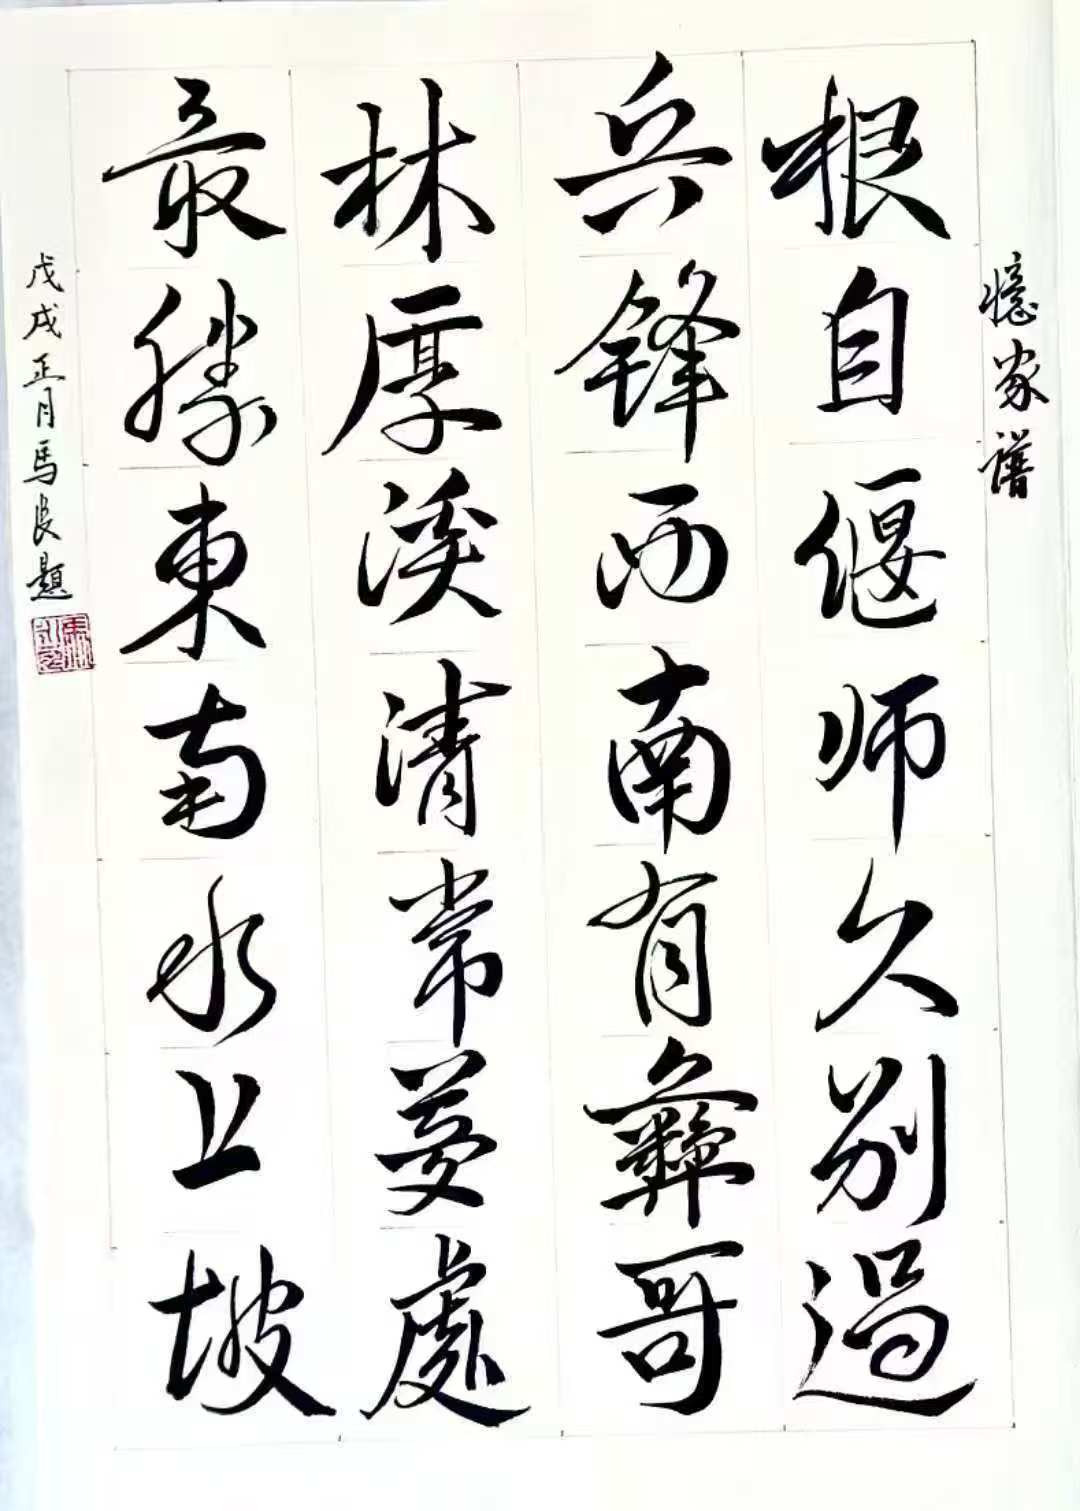 憶家譜
根自偃师久别過
兵锋西南有彝哥
林厚溪清常夢處
最勝東南水上坡
戊戌正月馬良題